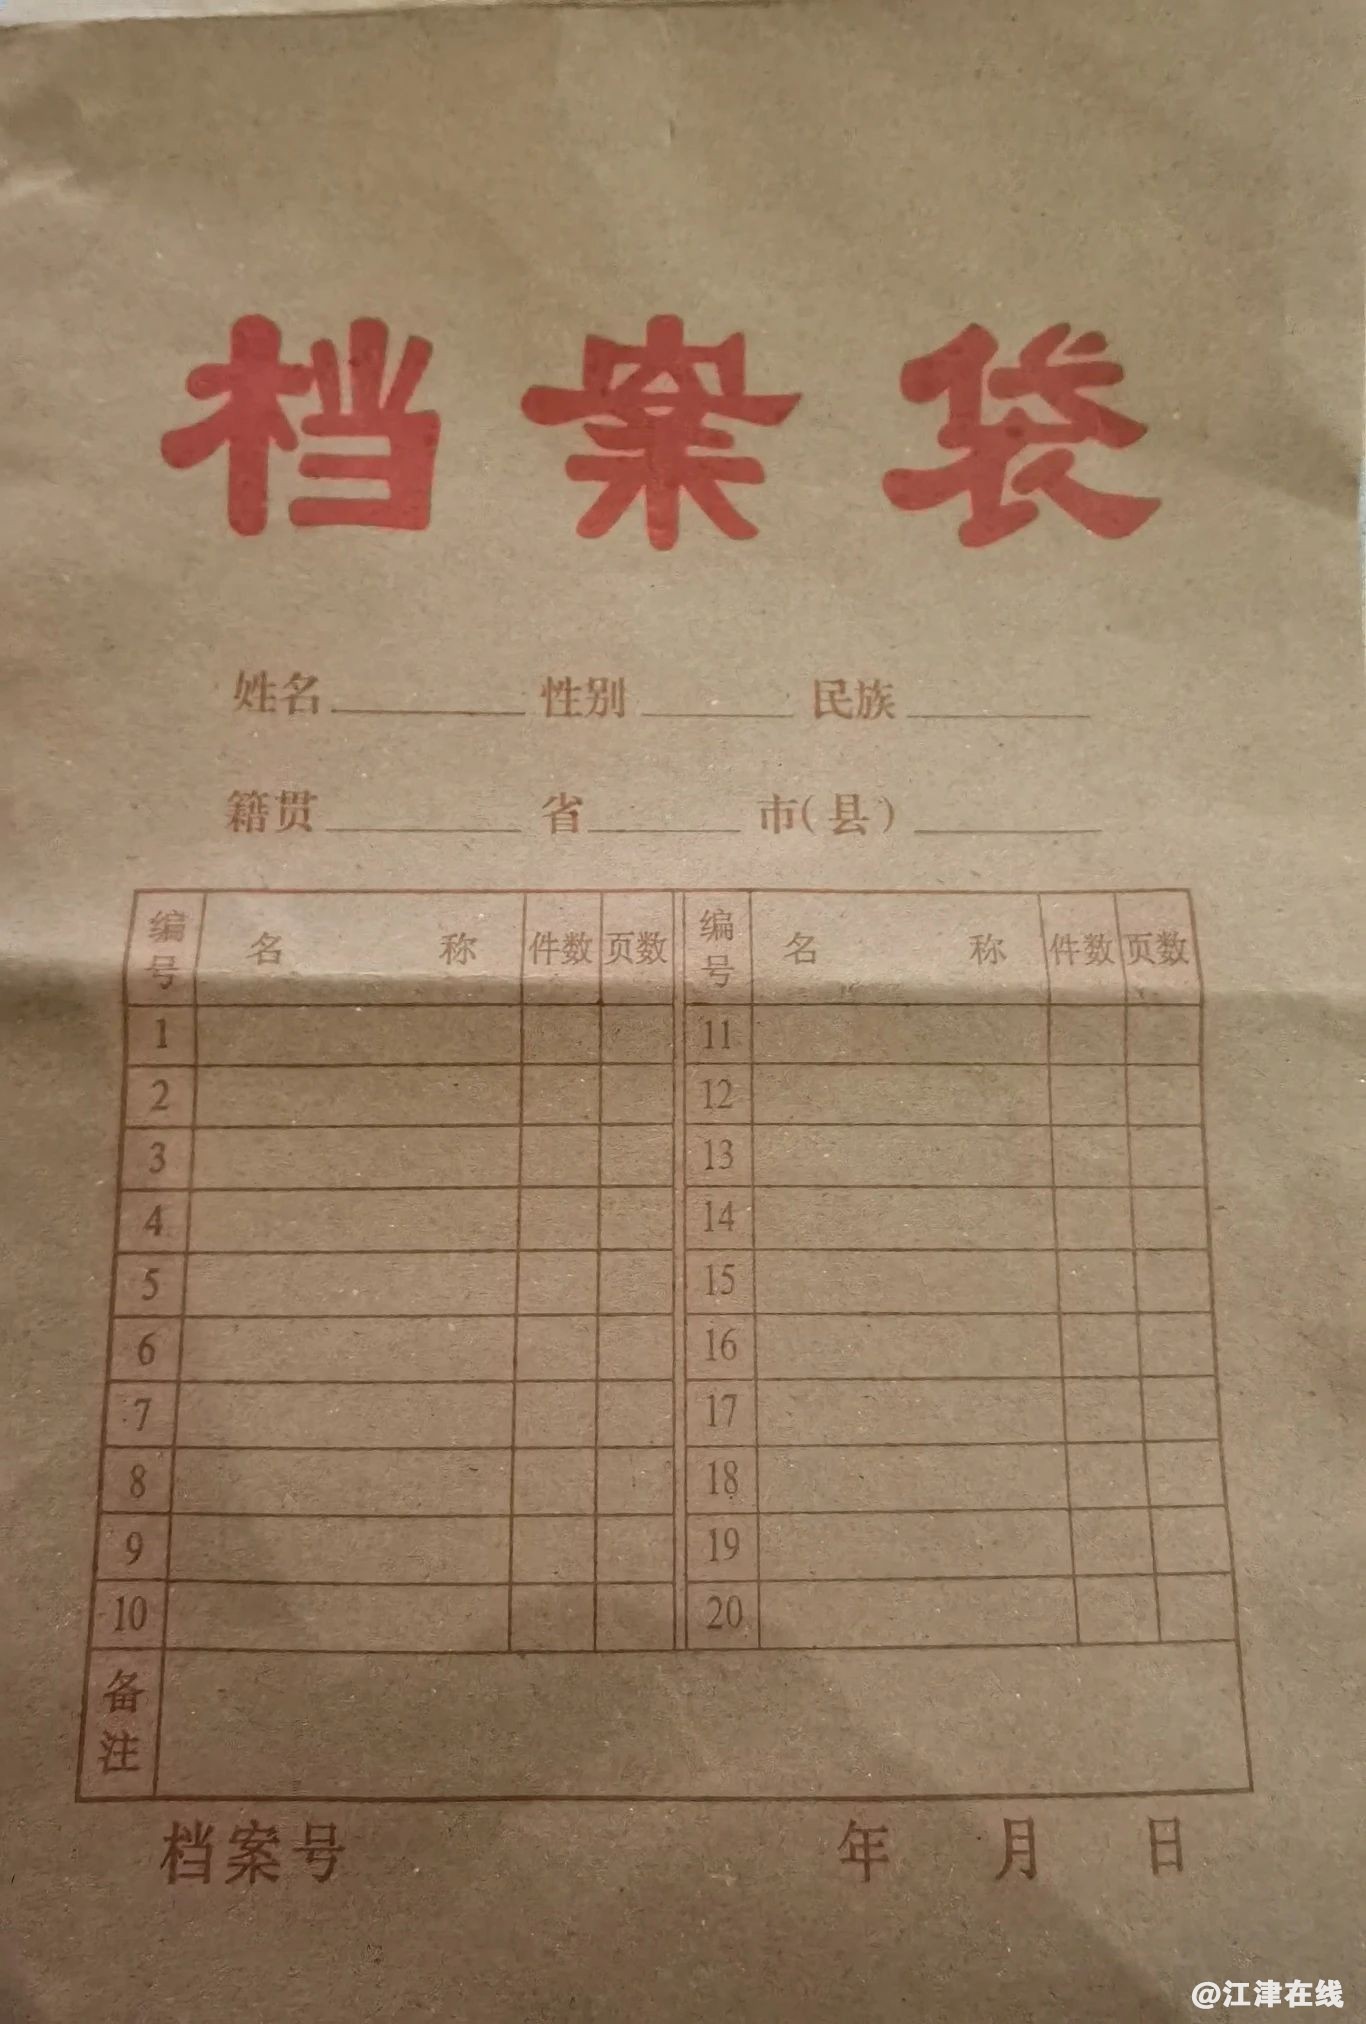 档案袋
姓名 性别 民族
籍贯 省 市(县)
编号 名称 件数 页数 编号 名称 件数 页数
1 11
2 12
3 13
4 14
5 15
6 16
7 17
8 18
9 19
10 20
备注
档案号 年 月 日
@江津在线